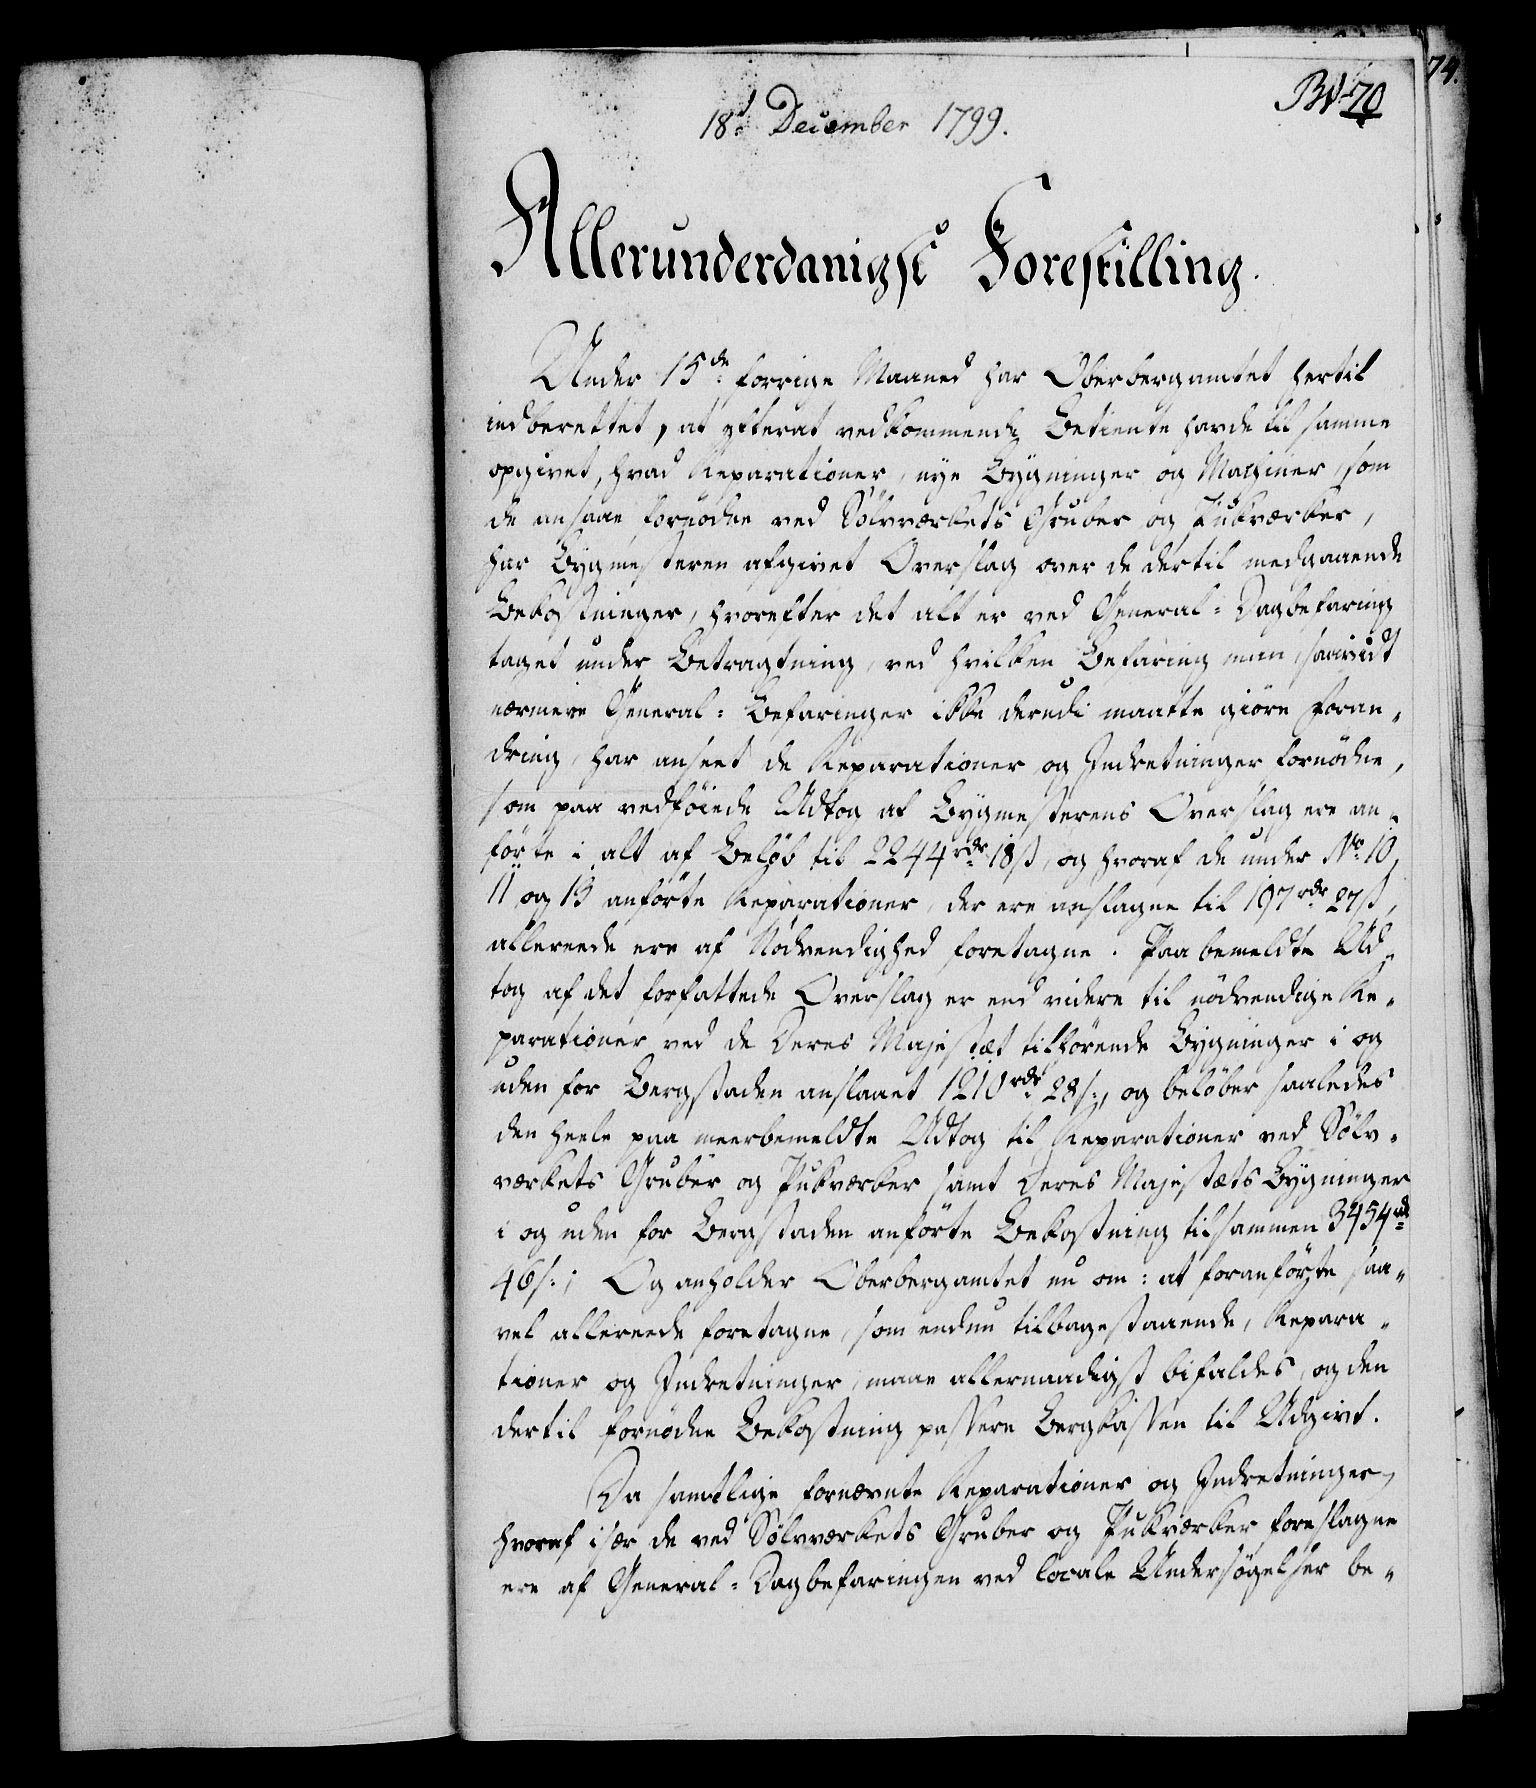 74.
BN 70
18d December 1799.
Allerunderdanigst Forestilling.
Under 15de forrige Maaned har Oberbergamtet hertil
indberettet, at efterat vedkommende Betiente havde til samme
opgivet, hvad Reparationer, nye Bygninger og Maciner, som
de ansaae fornødne ved Sølvværkets Gruber og Pukværker,
har Bygmesteren afgivet Overslag over de dertil medgaaende
Bekostninger, hvorefter det alt er ved General-Dagbefaring
taget under Betragtning, ved hvilken Befaring man, saavidt
nærmere General-Befaringer ikke derudi maatte giøre Foran-
dring, har anseet de Reparationer og Indretninger fornødne,
som paa vedføiede Udtog af Bygmesterens Overslag ere an-
førte i alt af Beløb til 2244 rdr 18 s, og hvoraf de under No 10,
11 og 13 anførte Reparationer, der ere anslagne til 197 rdr 27 s,
allereede ere af Nødvendighed foretagne. Paa bemeldte Ud-
tog af det forfattede Overslag er end videre til nødvendige Re-
parationer ved de Deres Majestæt tilhørende Bygninger i og
uden for Bergstaden anslaaet 1210 rdr 28 s:, og beløber saaledes
den heele paa meerbemeldte Udtog til Reparationer ved Sølv-
værkets Gruber og Pukværker samt Deres Majestæts Bygninger
i og uden for Bergstaden anførte Bekostning tilsammen 3454 rd
46 s.; Og anholder Oberbergamtet nu om: at foranførte saa-
vel allereede foretagne, som endnu tilbagestaaende, Repara-
tioner og Indretninger, maae allernaadigst bifaldes, og den
dertil fornødne Bekostning passere Bergkassen til Udgivt.
Da samtlige fornævnte Reparationer og Indretninger,
hvoraf især de ved Sølvværkets Gruber og Pukværker foreslagne
ere af General-Dagbefaringen ved locale Undersøgelser be-